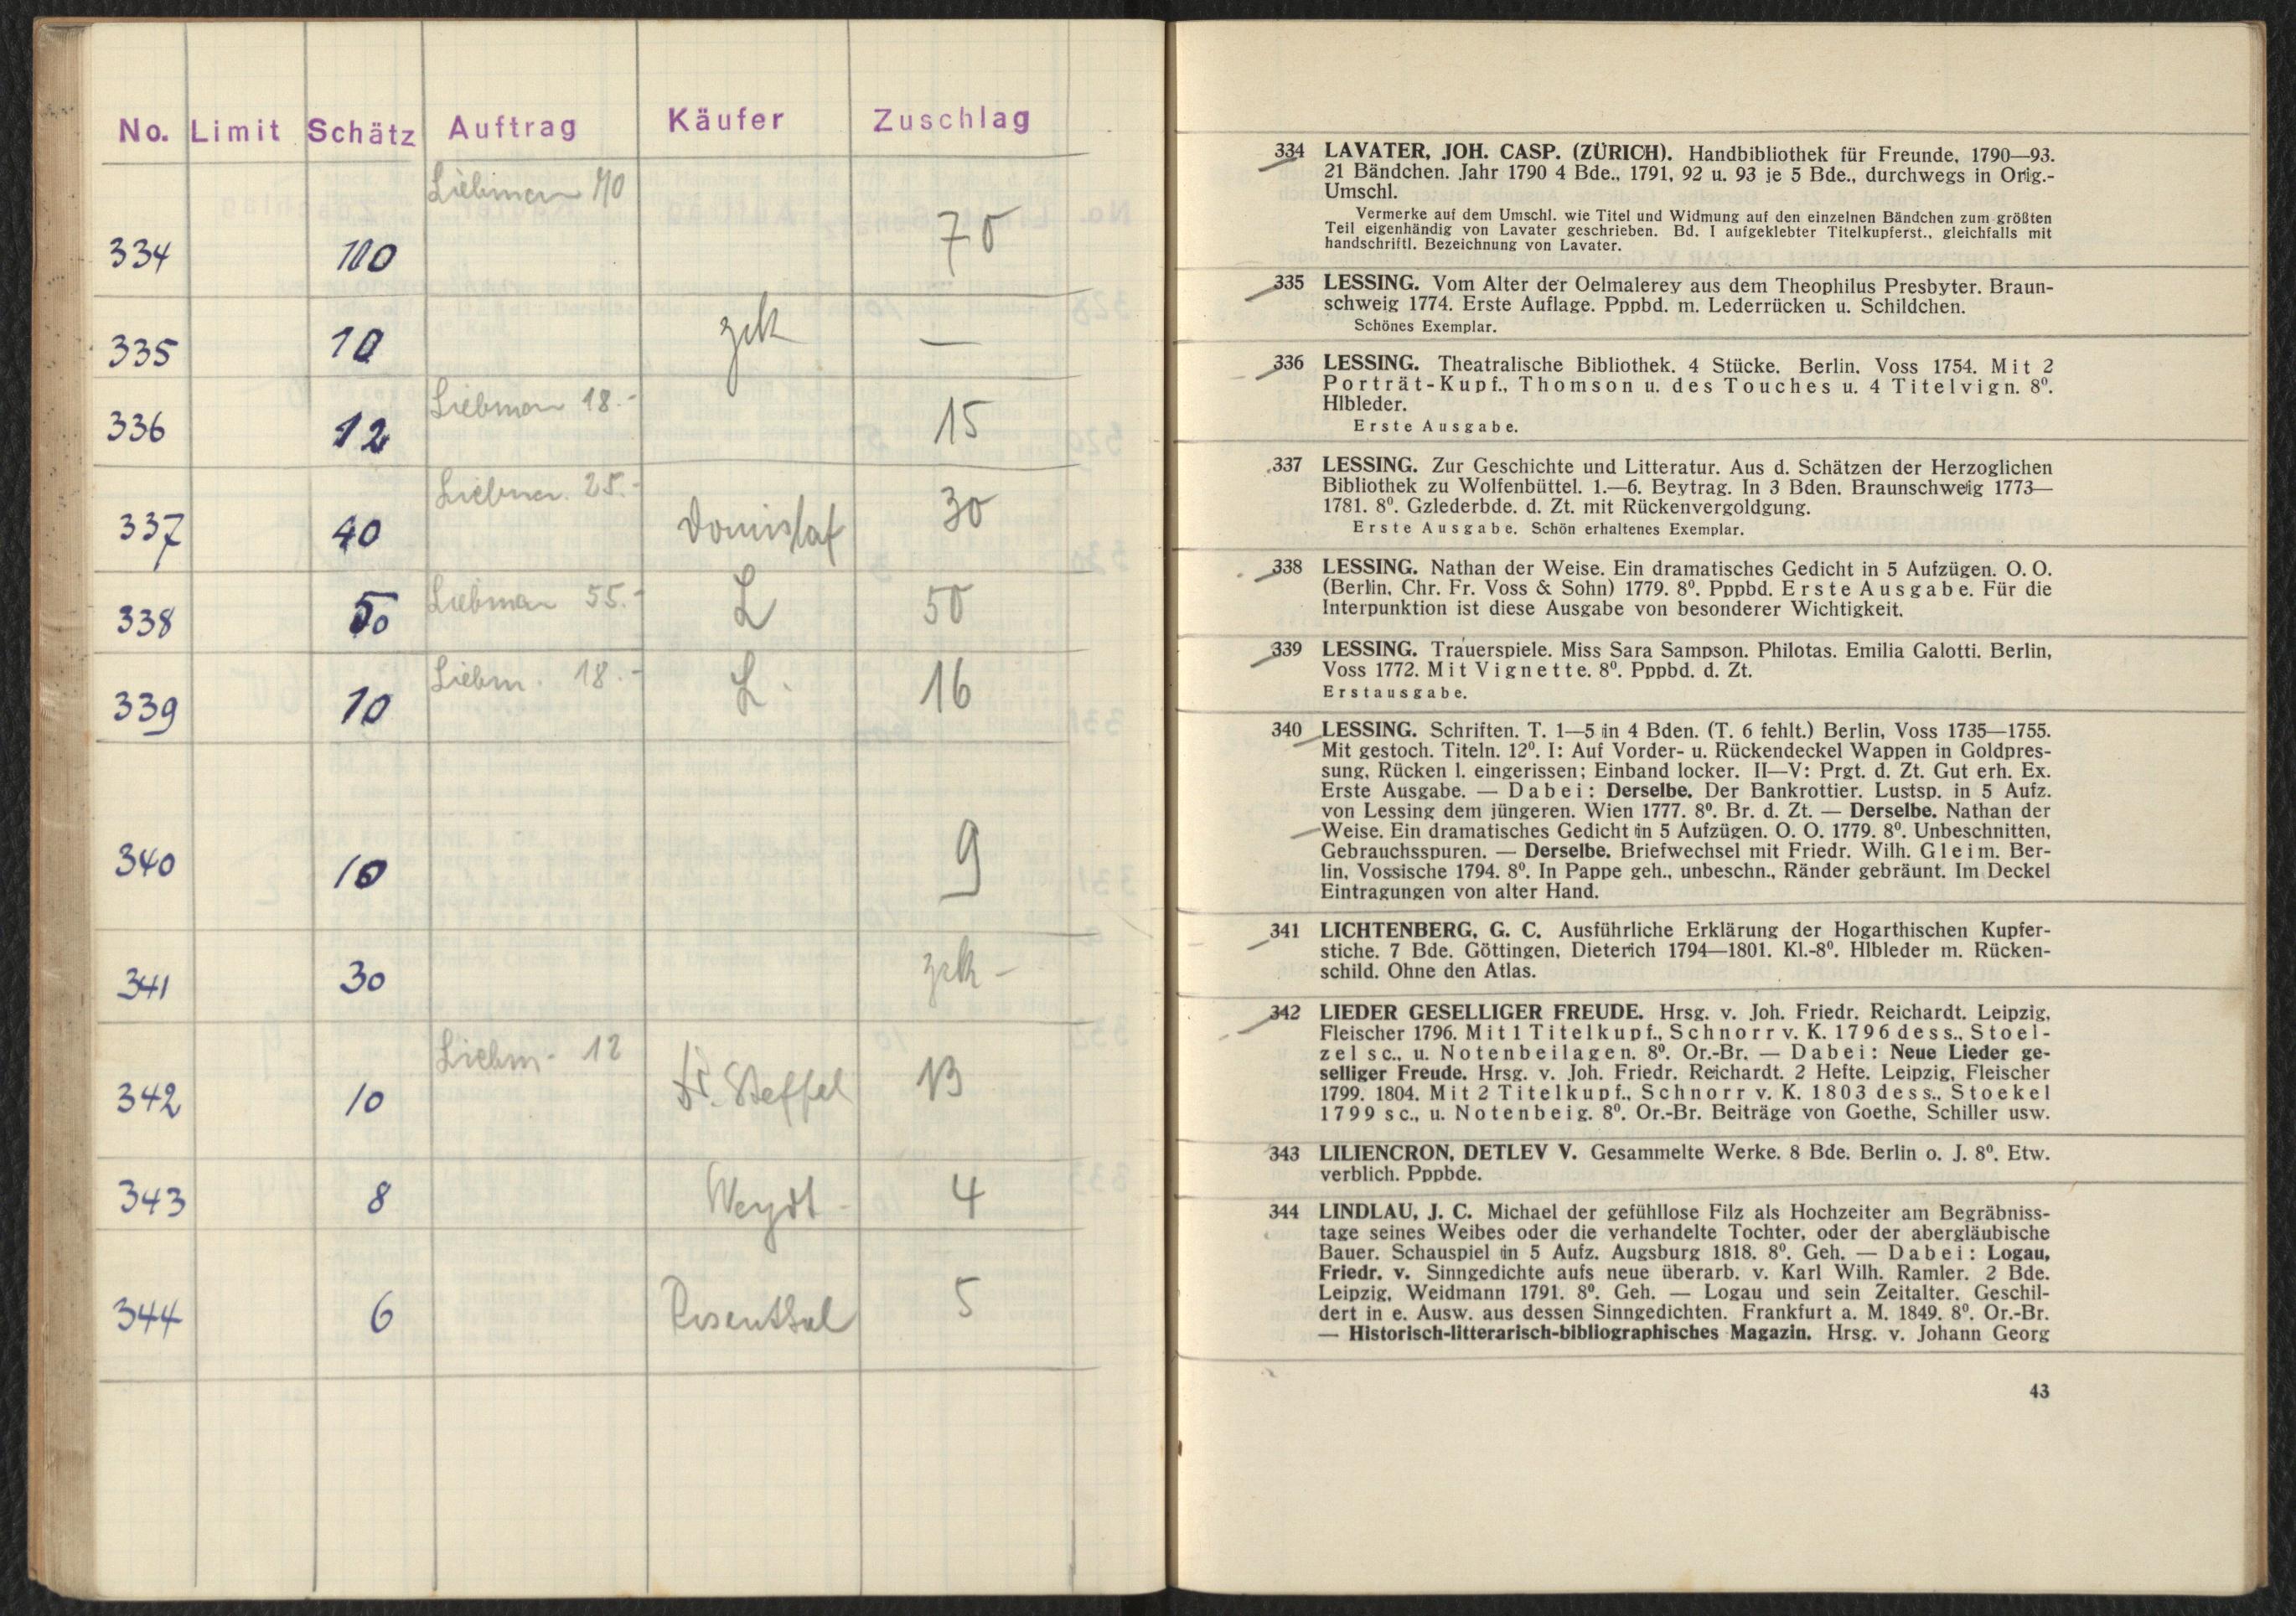 No. Limit Schätz Auftrag Käufer Zuschlag
Liebman
334 100 70
335 10 zck —
Liebman 18.-
336 12 15
25.-
337 40 30
Liebman 55.-
338 50 L 50
Liebm. 18.-
339 10 L. 16
340 10 9
341 30 zck -
Liebm- 12
342 10 Steffel 13
343 8 Weydt - 4
344 6 Rosenthal 5
334 LAVATER, JOH. CASP. (ZÜRICH). Handbibliothek für Freunde, 1790—93.
21 Bändchen. Jahr 1790 4 Bde., 1791, 92 u. 93 je 5 Bde., durchwegs in Orig.-
Umschl.
Vermerke auf dem Umschl. wie Titel und Widmung auf den einzelnen Bändchen zum größten
Teil eigenhändig von Lavater geschrieben. Bd. I aufgeklebter Titelkupferst., gleichfalls mit
handschriftl. Bezeichnung von Lavater.
335 LESSING. Vom Alter der Oelmalerey aus dem Theophilus Presbyter. Braun-
schweig 1774. Erste Auflage. Pppbd. m. Lederrücken u. Schildchen.
Schönes Exemplar.
336 LESSING. Theatralische Bibliothek. 4 Stücke. Berlin. Voss 1754. Mit 2
Porträt-Kupf., Thomson u. des Touches u. 4 Titelvign. 8⁰.
Hlbleder.
Erste Ausgabe.
337 LESSING. Zur Geschichte und Litteratur. Aus d. Schätzen der Herzoglichen
Bibliothek zu Wolfenbüttel. 1.—6. Beytrag. In 3 Bden. Braunschweig 1773—
1781. 8⁰. Gzlederbde. d. Zt. mit Rückenvergoldgung.
Erste Ausgabe. Schön erhaltenes Exemplar.
338 LESSING. Nathan der Weise. Ein dramatisches Gedicht in 5 Aufzügen. O. O.
(Berlin, Chr. Fr. Voss & Sohn) 1779. 8⁰. Pppbd. Erste Ausgabe. Für die
Interpunktion ist diese Ausgabe von besonderer Wichtigkeit.
339 LESSING. Trauerspiele. Miss Sara Sampson. Philotas. Emilia Galotti. Berlin,
Voss 1772. Mit Vignette. 8⁰. Pppbd. d. Zt.
Erstausgabe.
340 LESSING. Schriften. T. 1—5 in 4 Bden. (T. 6 fehlt.) Berlin, Voss 1735—1755.
Mit gestoch. Titeln. 12⁰. I: Auf Vorder- u. Rückendeckel Wappen in Goldpres-
sung, Rücken l. eingerissen; Einband locker. II—V: Prgt. d. Zt. Gut erh. Ex.
Erste Ausgabe. — Dabei: Derselbe. Der Bankrottier. Lustsp. in 5 Aufz.
von Lessing dem jüngeren. Wien 1777. 8⁰. Br. d. Zt. — Derselbe. Nathan der
Weise. Ein dramatisches Gedicht in 5 Aufzügen. O. O. 1779. 8⁰. Unbeschnitten,
Gebrauchsspuren. — Derselbe. Briefwechsel mit Friedr. Wilh. Gleim. Ber-
lin, Vossische 1794. 8⁰. In Pappe geh., unbeschn., Ränder gebräunt. Im Deckel
Eintragungen von alter Hand.
341 LICHTENBERG, G. C. Ausführliche Erklärung der Hogarthischen Kupfer-
stiche. 7 Bde. Göttingen, Dieterich 1794—1801. Kl.-8⁰. Hlbleder m. Rücken-
schild. Ohne den Atlas.
342 LIEDER GESELLIGER FREUDE. Hrsg. v. Joh. Friedr. Reichardt. Leipzig,
Fleischer 1796. Mit 1 Titelkupf., Schnorr v. K. 1796 dess., Stoel-
zel sc., u. Notenbeilagen. 8⁰. Or.-Br. — Dabei: Neue Lieder ge-
selliger Freude. Hrsg. v. Joh. Friedr. Reichardt. 2 Hefte. Leipzig, Fleischer
1799. 1804. Mit 2 Titelkupf., Schnorr v. K. 1803 dess., Stoekel
1799 sc., u. Notenbeig. 8⁰. Or.-Br. Beiträge von Goethe, Schiller usw.
343 LILIENCRON, DETLEV V. Gesammelte Werke. 8 Bde. Berlin o. J. 8⁰. Etw.
verblich. Pppbde.
344 LINDLAU, J. C. Michael der gefühllose Filz als Hochzeiter am Begräbniss-
tage seines Weibes oder die verhandelte Tochter, oder der abergläubische
Bauer. Schauspiel in 5 Aufz. Augsburg 1818. 8⁰. Geh. — Dabei: Logau,
Friedr. v. Sinngedichte aufs neue überarb. v. Karl Wilh. Ramler. 2 Bde.
Leipzig, Weidmann 1791. 8⁰. Geh. — Logau und sein Zeitalter. Geschil-
dert in e. Ausw. aus dessen Sinngedichten. Frankfurt a. M. 1849. 8⁰. Or.-Br.
— Historisch-litterarisch-bibliographisches Magazin. Hrsg. v. Johann Georg
43